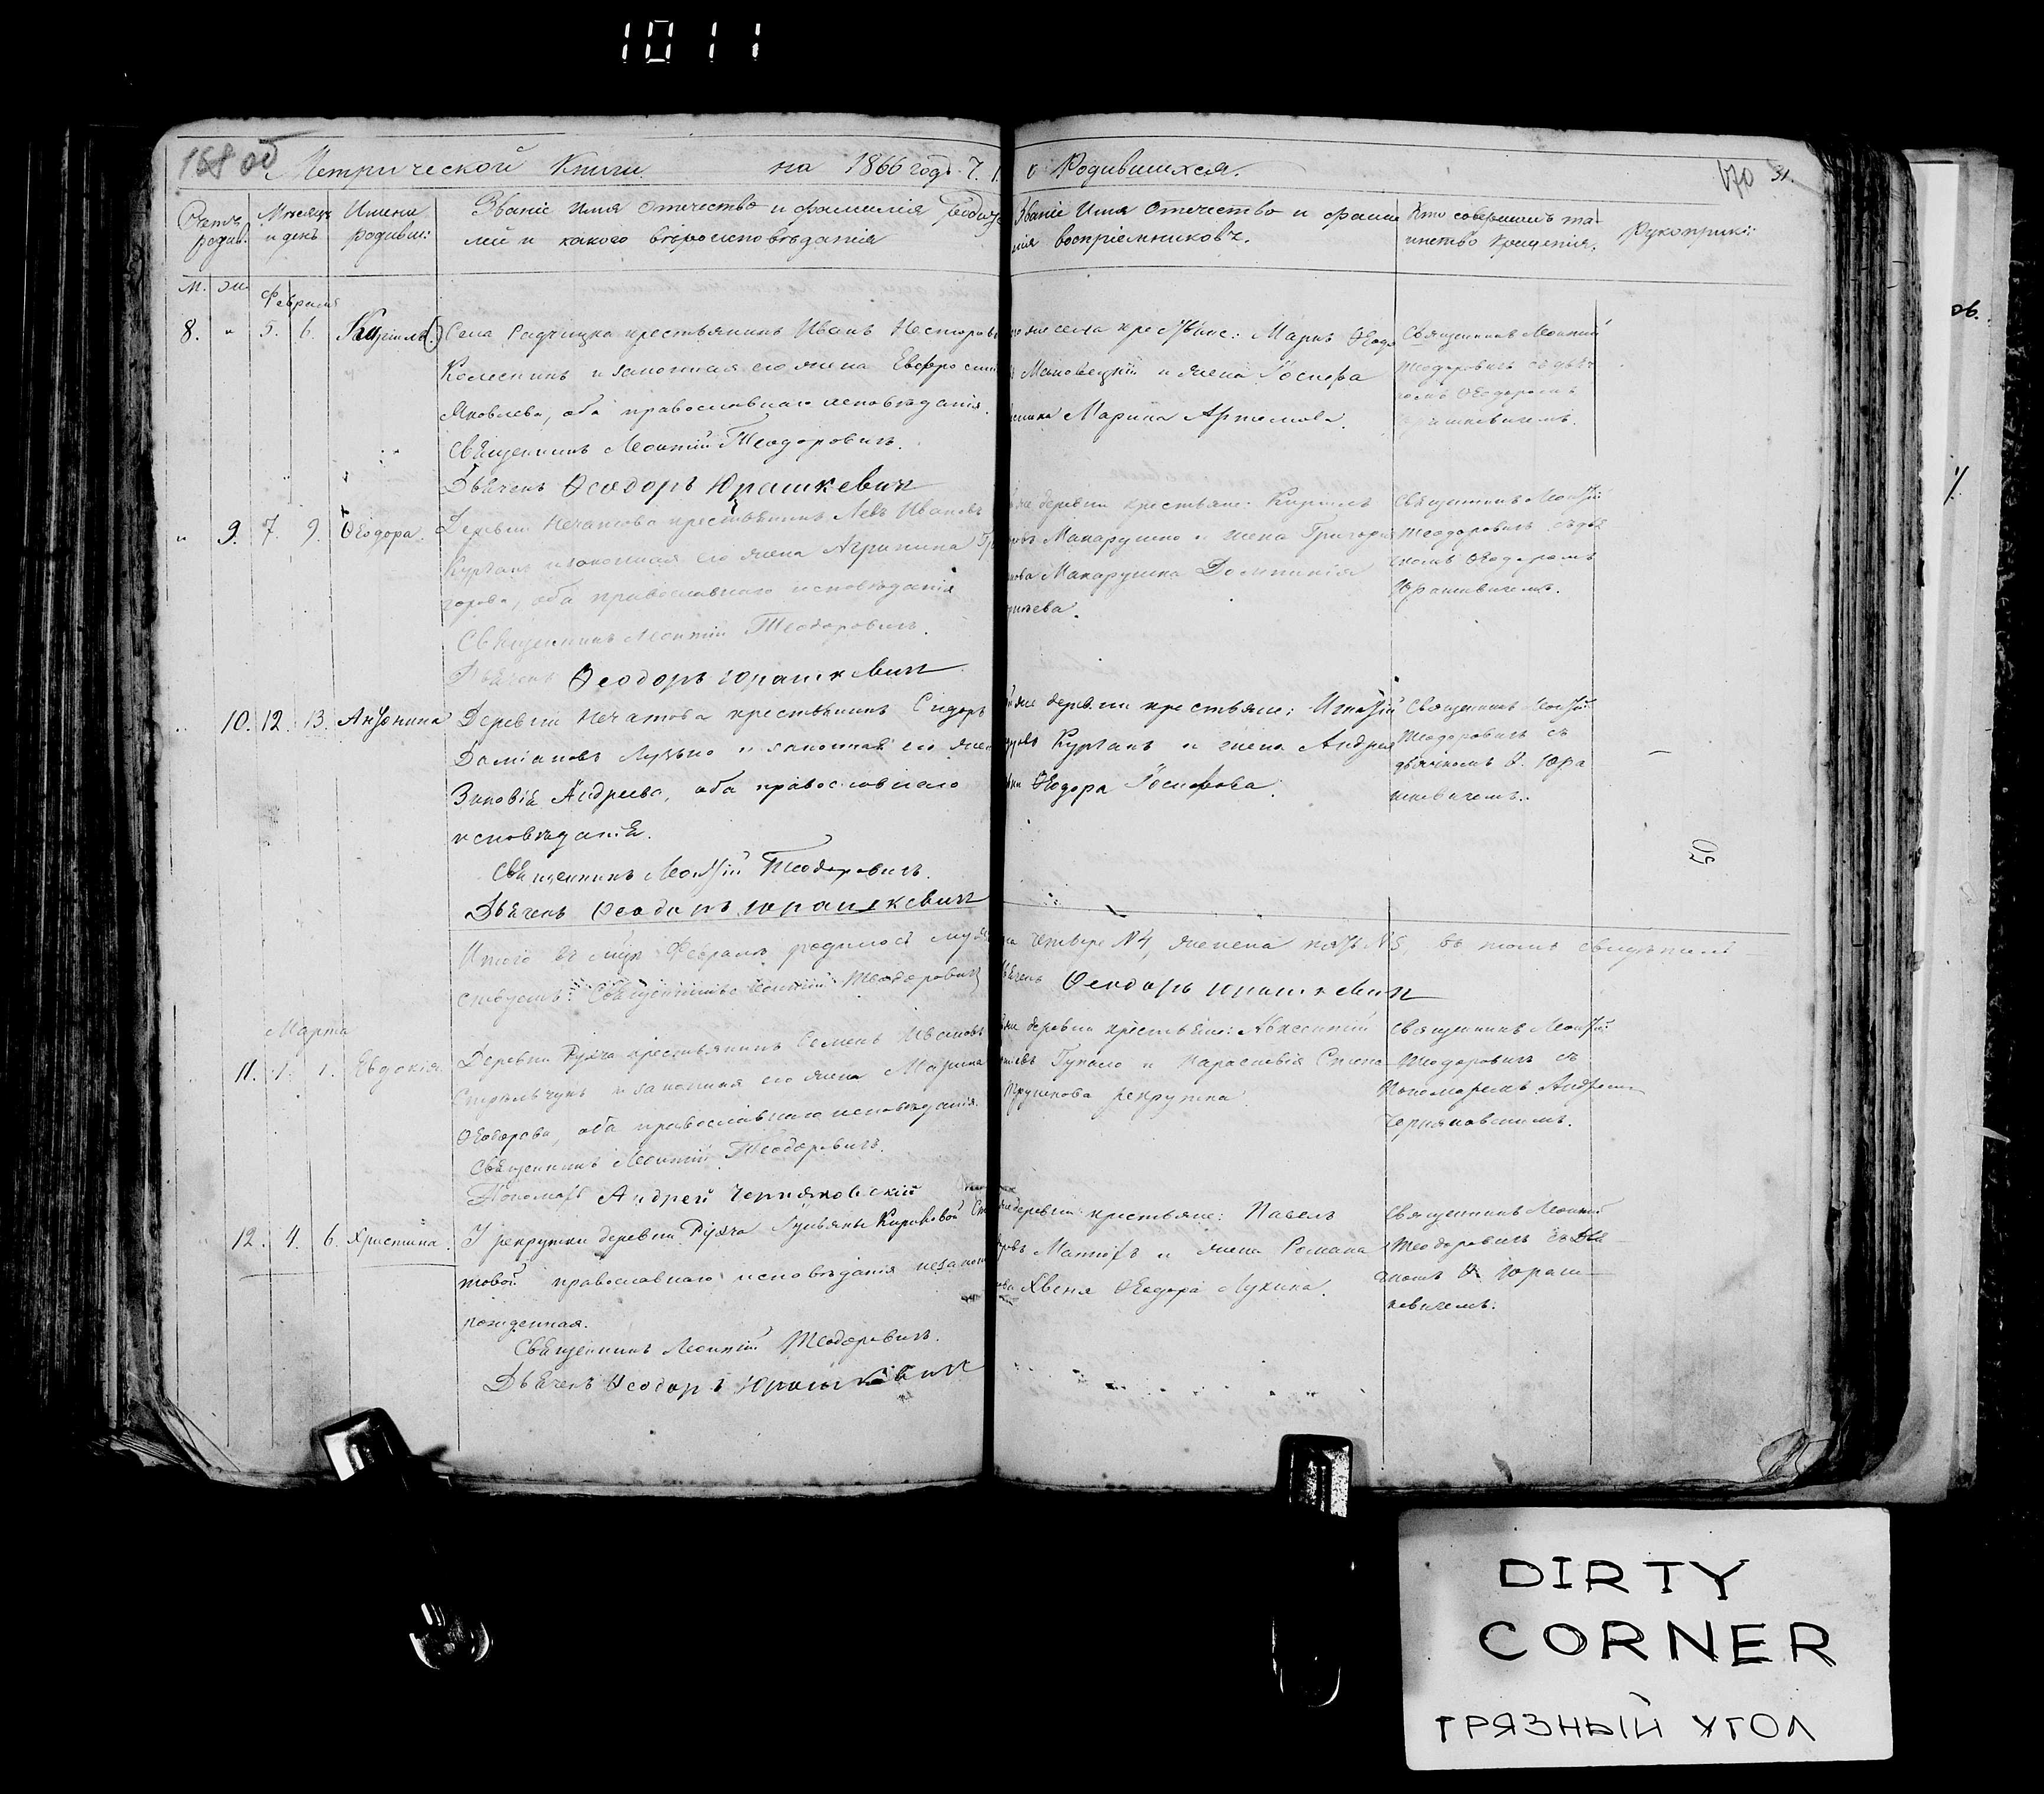 1011
168 об Метрической Книги на 1866 годъ Ч. 1. о Родившихся. 170 31.
Счетъ родив: Мѣсяцъ и день Имена родивш: Званіе Имя Отечество и фамилія родите
лей и какого вѣроисповѣданія
Званіе Имя Отечество и фами
лія воспріемниковъ.
Кто совершилъ та
инство крещенія.
Рукоприк:
М. Ж.
Февраля
8. " 5. 6. Села Радчицка крестьянинъ Иванъ Несторовъ
Колесникъ и законная его жена Евфросинія
Яковлева, оба православнаго исповѣданія.
Священникъ Леонтій Теодоровичъ.
Дьячекъ Ѳеодоръ Юрашкевич
села крестьяне: Маркъ Ѳеодо
Маковецкій и жена Іосифа
Марина Артемова.
Священникъ Леонтій
Теодоровичъ съ дьяч
комъ Ѳеодоромъ
Юрашкевичемъ.
" 9. 7. 9. Ѳеодора. Деревни Нечатова крестьянинъ Левъ Ивановъ
Курганъ и законная его жена Агрипина Гри
горова, оба православнаго исповѣданія
Священникъ Леонтій Теодоровичъ.
Дьячекъ Ѳеодоръ Юрашкевич
деревни крестьяне: Кирилъ
Макарушко и жена Григорія
Макарушка Домникія
Священникъ Леонтій
Теодоровичъ съ дья
чкомъ Ѳеодоромъ
Юрашкевичемъ.
10. 12. 13. Антонина Деревни Нечатова крестьянинъ Сидоръ
Даміановъ и законная его жена
Зиновія Андреева, оба православнаго
исповѣданія.
Священникъ Леонтій Теодоровичъ.
Дьячекъ Ѳеодоръ Юрашкевич
деревни крестьяне: Игнатій
Курганъ и жена Андрея
Ѳеодора Іосифова.
Священникъ Леонтій
Теодоровичъ съ
дьячкомъ Ѳ. Юра
шкевичемъ.
50
Итого въ мцѣ Февралѣ родилось муж
четыре №4, женска пять №5, въ томъ свидѣтель
ствуемъ: Священникъ Леонтій Теодоровичъ
Дьячекъ Ѳеодоръ Юрашкевич
Марта
11. 1. 1. Евдокія. Деревни Рухча крестьянинъ Семенъ Ивановъ
Стрѣльчукъ и законная его жена Марина
Ѳеодорова, оба православнаго исповѣданія.
Священникъ Леонтій Теодоровичъ.
Пономарь Андрей Черняковскій
деревни крестьяне: Авксентій
и Параскевія Степа
рекрутка.
Священникъ Леонтій
Теодоровичъ съ
Пономаремъ Андреемъ
Черняковскимъ.
12. 4. 6. Христина. У рекрутки деревни Рухча Ульяны Кириковой
товой православнаго исповѣданія незакон
рожденная.
Священникъ Леонтій Теодоровичъ.
Дьячекъ Ѳеодоръ Юрашкевич
деревни крестьяне: Павелъ
и жена Романа
Ѳеодора Лукина.
Священникъ Леонтій
Теодоровичъ съ Дья
чкомъ Ѳ Юраш
кевичемъ.
DIRTY
CORNER
ГРЯЗНЫЙ УГОЛ